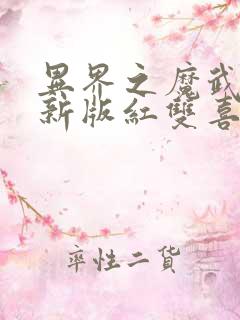 異界之魔武
新版紅雙喜
率性二貨